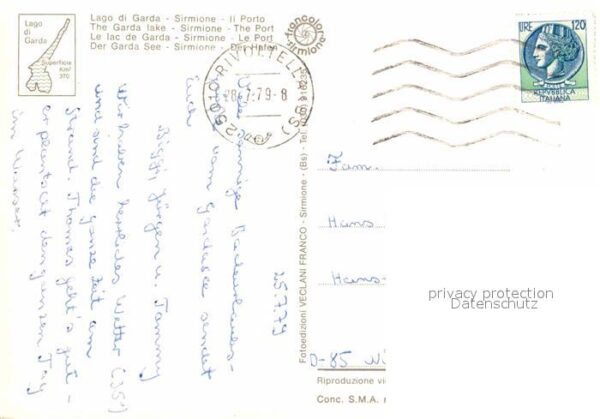 Lago
di
Garda
Superficie
Km²
370
Lago di Garda - Sirmione - Il Porto
The Garda lake - Sirmione - The Port
Le lac de Garda - Sirmione - Le Port
Der Garda See - Sirmione - Der Hafen
francolor
sirmione
25010 RIVOLTELLA (BS)
28.7.79-8
LIRE 120
POSTE
REPUBBLICA
ITALIANA
25.7.79
Viele sonnige Badeurlaubs-
vom Gardasee sendet
Euch
Jürgen u. Tammy
Wir haben herrliches Wetter (35°)
und sind die ganze Zeit am
Strand. Thomas geht's gut -
er plantscht den ganzen Tag
im Wasser.
Fotoedizioni VECLANI FRANCO - Sirmione - (Bs) - Tel.
Fam.
Hans
Hans-
D-85
privacy protection
Datenschutz
Riproduzione
Conc. S.M.A.